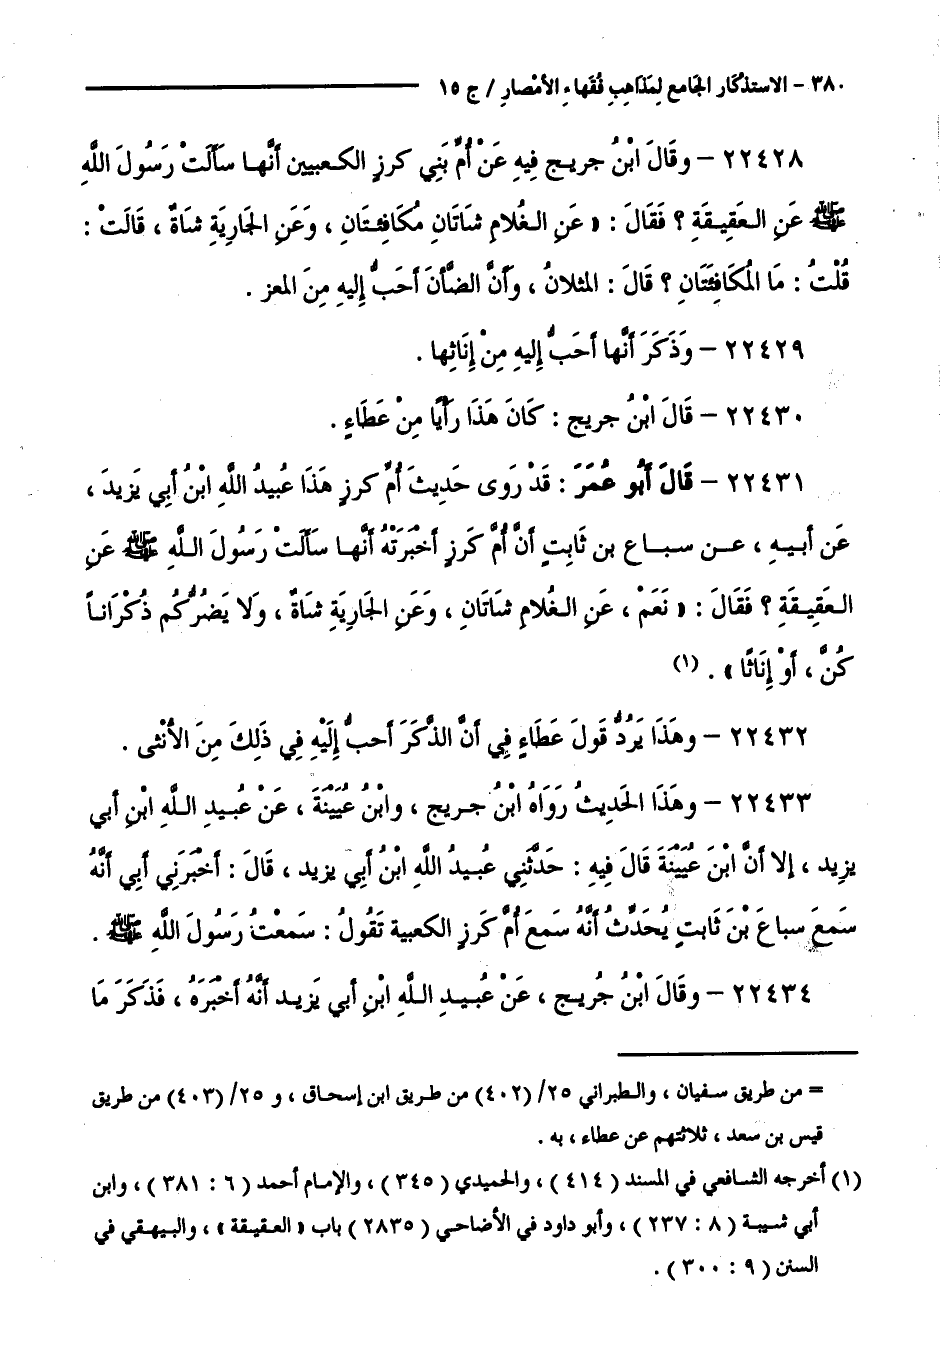 ٣٨٠ - الاستذْكَار الجَامع لِمَذَاهِبِ فُقَهاءِ الأمْصارِ / ج ١٥
٢٢٤٢٨ - وقَالَ ابْنُ جريج فِيهِ عَنْ أُمِّ بَنِي كرزٍ الكعبيين أنَّها سَألَتْ رَسُولَ اللَّهِ
ﷺ عَنِ العَقِيقَةِ ؟ فَقَالَ : « عَنِ الغُلامِ شاتَانِ مُكَافِئتَانِ ، وَعَنِ الجَارِيَةِ شاةٌ ، قَالَتْ :
قُلْتُ : مَا المُكَافِئَتَانِ ؟ قَالَ : المثلانُ ، وَأنَّ الضَّأنَ أحَبُّ إليهِ مِنَ المعز .
٢٢٤٢٩ - وَذَكَرَ أنَّها أحَبُّ إليهِ مِنْ إنَاثِها .
٢٢٤٣٠ - قَالَ ابْنُ جريج : كَانَ هَذَا رَأيًا مِنْ عَطَاءٍ .
٢٢٤٣١ - قَالَ أَبُو عُمَرَ : قَدْ رَوى حَدِيثَ أُمِّ كرزٍ هَذَا عُبيدُ اللَّهِ ابْنُ أبِي يَزِيدَ ،
عَن أبيهِ ، عـن سبـاع بن ثَابِتٍ أنَّ أُمَّ كَرزٍ أخْبَرَتْهُ أنَّها سألَتْ رَسُولَ اللَّهِ ﷺ عَنِ
العَقِيقَةِ ؟ فَقَالَ : « نَعَمْ ، عَنِ الغُلامِ شاتَان ، وَعَنِ الجَارِيَةِ شاةٌ ، وَلا يَضُرُّكُم ذُكْرَاناً
كُنَّ ، أوْ إنَاثًا » . (١)
٢٢٤٣٢ - وهَذَا يَرُدُّ قَولَ عَطَاءٍ فِي أنَّ الذَّكَرَ أحبُّ إلَيْهِ فِي ذَلِكَ مِنَ الأُنْثى .
٢٢٤٣٣ - وهَذَا الحَدِيثُ رَوَاهُ ابْنُ جريج ، وابْنُ عُيَيْنَةَ ، عَنْ عُبيدِ اللَّهِ ابْنِ أبي
يزيد ، إلا أنَّ ابْنَ عُيَيْنَةَ قَالَ فِيهِ : حَدَّثَنِي عُبيدُ اللَّهِ ابْنُ أبِي يزيد ، قَالَ : أخْبَرَنِي أبِي أنَّهُ
سَمعَ سباعَ بْنَ ثَابتٍ يُحَدِّثُ أنَّهُ سَمعَ أُمَّ كَرزٍ الكعبية تَقُولُ : سَمعْتُ رَسُولَ اللَّهِ ﷺ .
٢٢٤٣٤ - وقَالَ ابْنُ جُريج ، عَنْ عُبيدِ اللَّهِ ابْنِ أبي يَزيد أنَّهُ أخْبَرَهُ ، فَذَكَرَ مَا
= من طريق سفيان ، والطبراني ٢٥/ (٤٠٢) من طريق ابن إسحاق ، و ٢٥/ (٤٠٣) من طريق
قيس بن سعد ، ثلاثتهم عن عطاء ، به .
(١) أخرجه الشافعي في المسند ( ٤١٤ ) ، والحميدي ( ٣٤٥ ) ، والإمام أحمد ( ٦ : ٣٨١ ) ، وابن
أبي شيبة ( ٨ : ٢٣٧ ) ، وأبو داود في الأضاحي ( ٢٨٣٥ ) باب « العقيقة » ، والبيهقي في
السنن ( ٩ : ٣٠٠ ) .